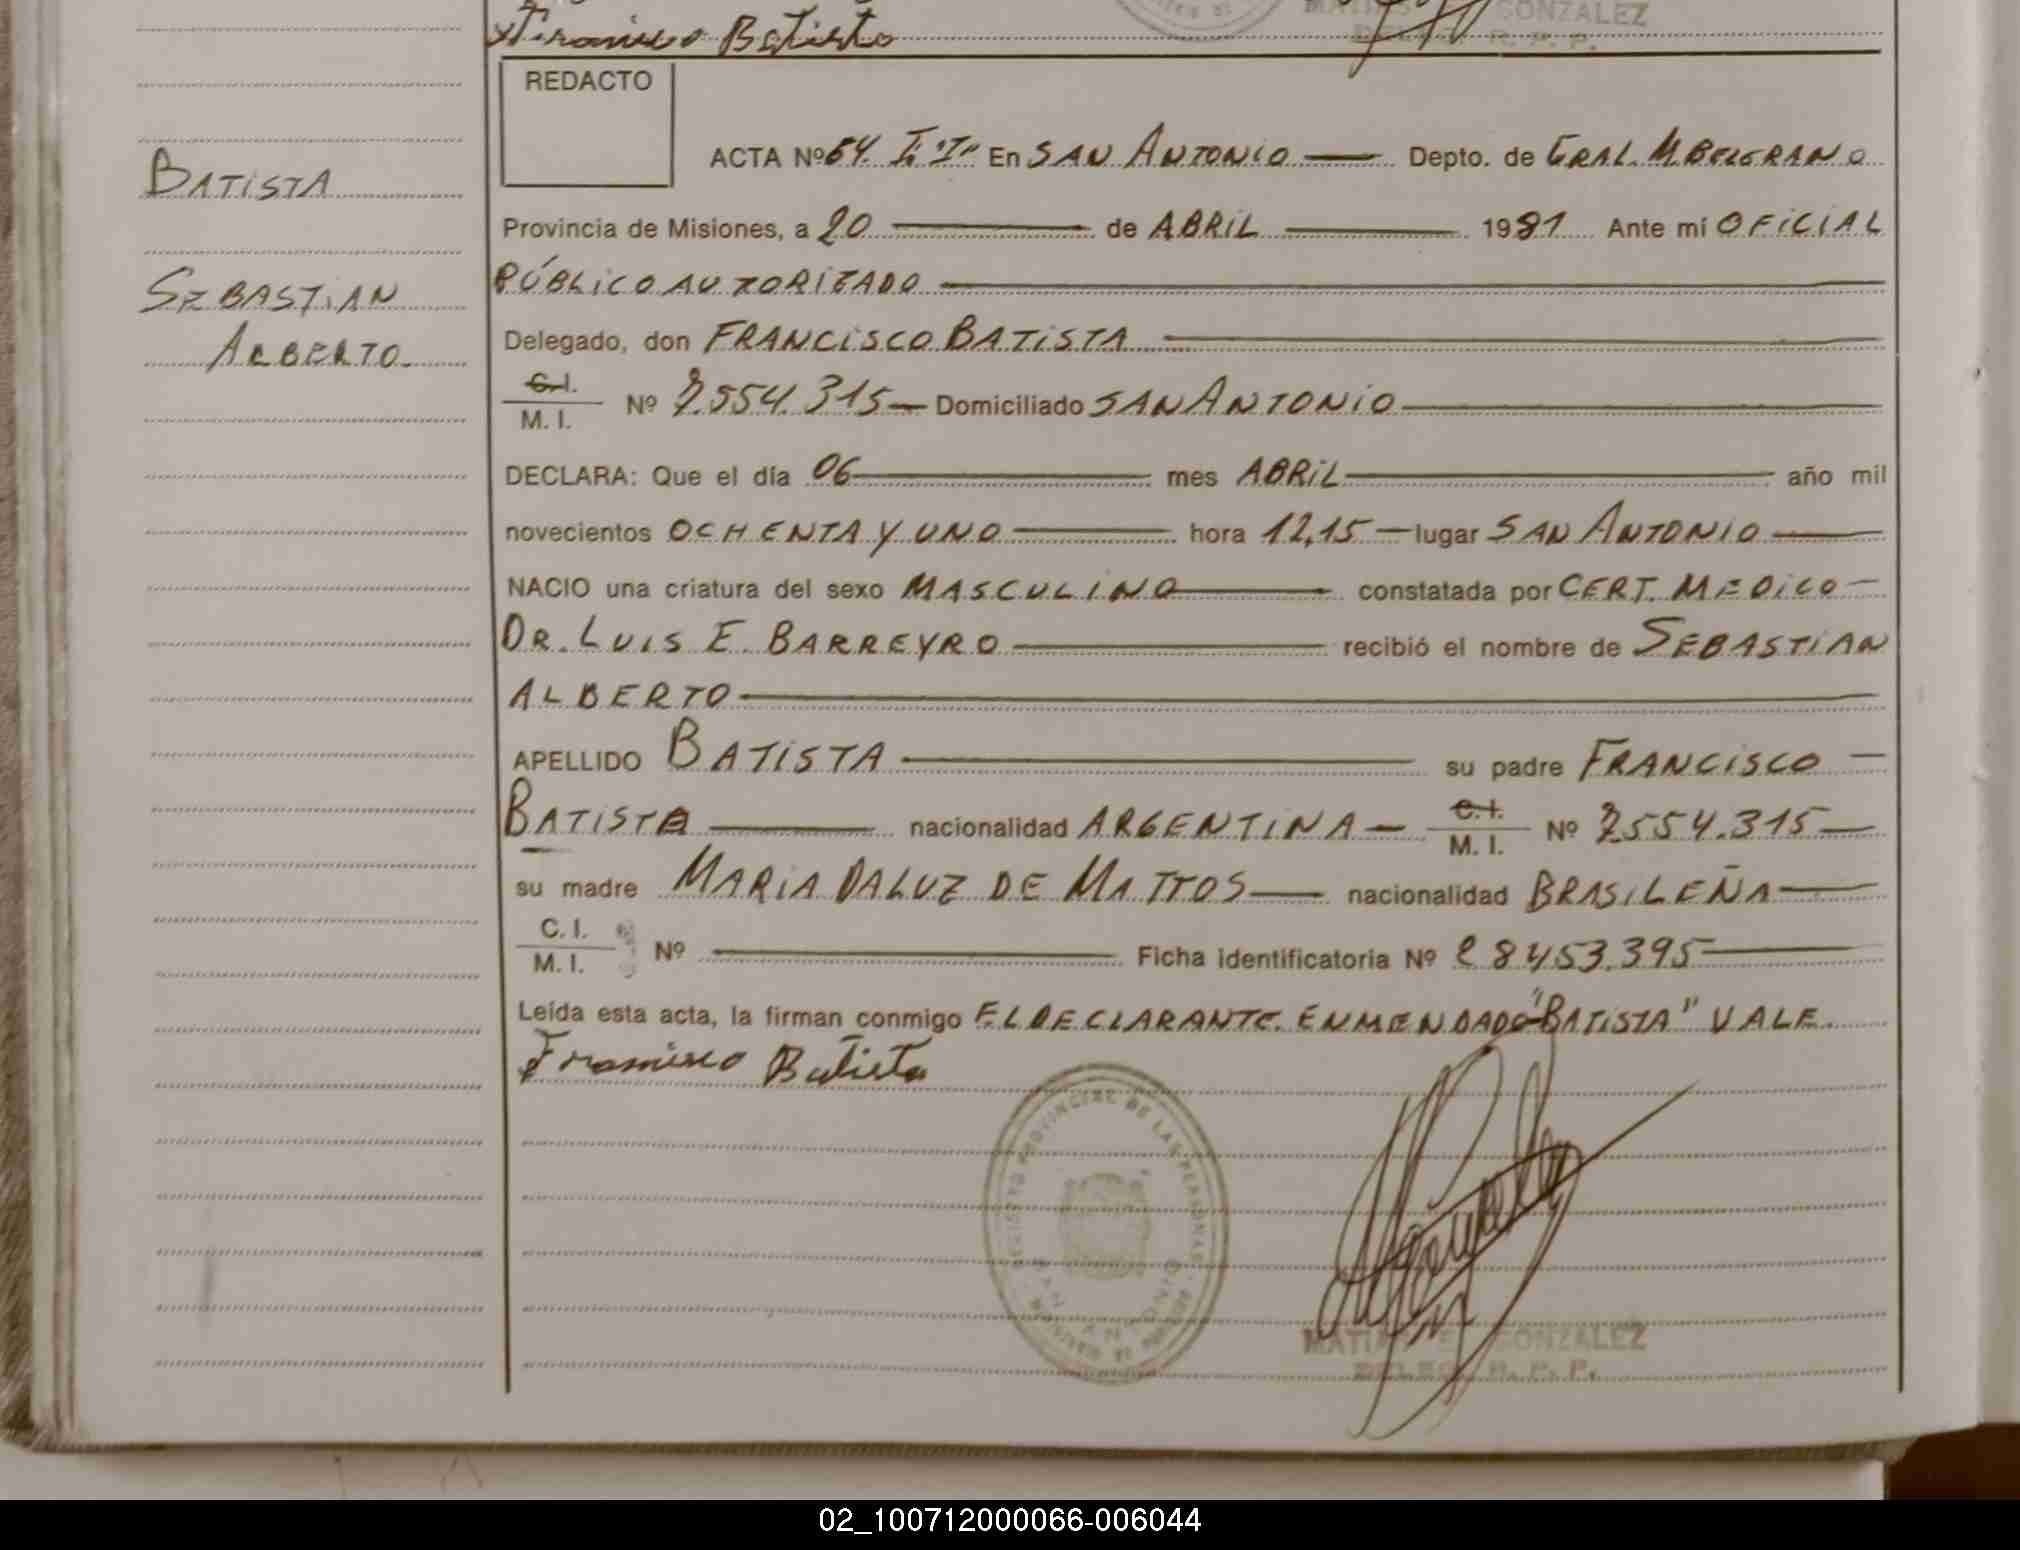 Francisco Batista
GONZALEZ
R. P. P.
REDACTO
ACTA Nº 64 T. "I" En SAN ANTONIO Depto. de GRAL. M. BELGRANO
BATISTA
Provincia de Misiones, a 20 de ABRIL 1981 Ante mí OFICIAL
SEBASTIAN
PÚBLICO AUTORIZADO
ALBERTO
Delegado, don FRANCISCO BATISTA
C. I.
M. I. Nº 7.554.315 Domiciliado SAN ANTONIO
DECLARA: Que el día 06 mes ABRIL año mil
novecientos OCHENTA Y UNO hora 12,15 lugar SAN ANTONIO
NACIO una criatura del sexo MASCULINO constatada por CERT. MEDICO
DR. LUIS E. BARREYRO recibió el nombre de SEBASTIAN
ALBERTO
APELLIDO BATISTA su padre FRANCISCO
BATISTA nacionalidad ARGENTINA C. I.
M. I. Nº 7.554.315
su madre MARIA DALUZ DE MATTOS nacionalidad BRASILEÑA
C. I.
M. I. Nº Ficha identificatoria Nº 28453.395
Leída esta acta, la firman conmigo EL DECLARANTE. ENMENDADO "BATISTA" VALE.
Francisco Batista
REGISTRO PROVINCIAL DE LAS PERSONAS
SAN ANTONIO
MATIAS E. GONZALEZ
DELEG. R. P. P.
02_100712000066-006044